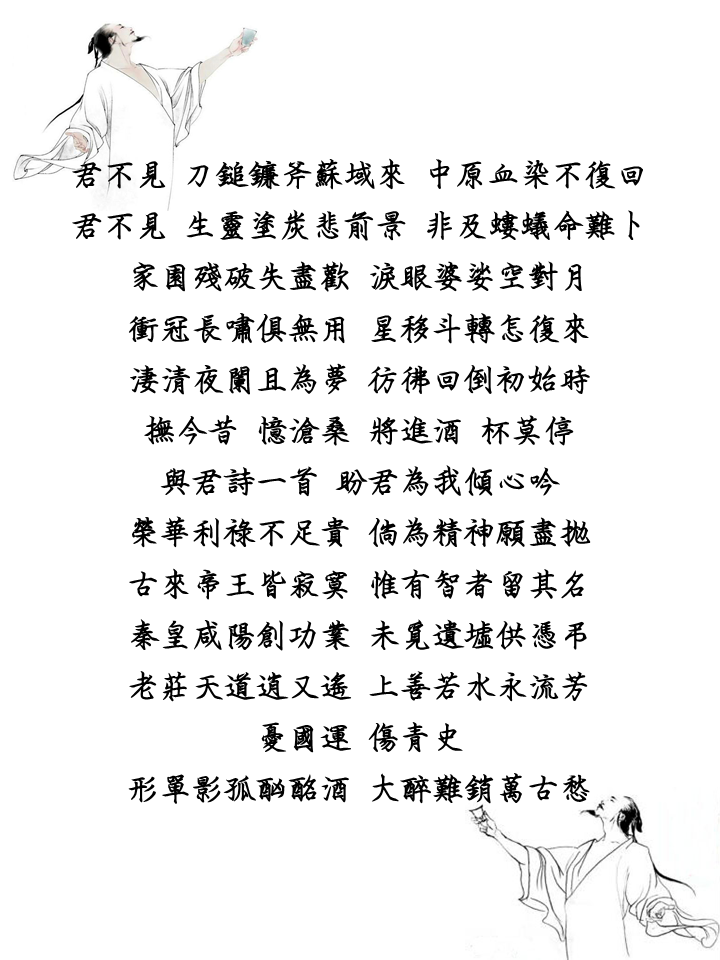 君不見 刀鎚鐮斧蘇域來 中原血染不復回
君不見 生靈塗炭悲前景 非及螻蟻命難卜
家園殘破失盡歡 淚眼婆娑空對月
衝冠長嘯俱無用 星移斗轉怎復來
淒清夜闌且為夢 彷彿回到初始時
撫今昔 憶滄桑 將進酒 杯莫停
與君詩一首 盼君為我傾心吟
榮華利祿不足貴 倘為精神願盡拋
古來帝王皆寂寞 惟有智者留其名
秦皇咸陽創功業 未覓遺墟供憑弔
老莊天道逍又遙 上善若水永流芳
憂國運 傷青史
形單影孤酗酩酒 大醉難銷萬古愁